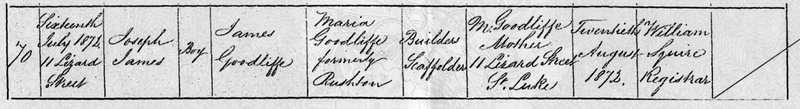 70
Sixteenth
July 1872
11 Lizard
Street
Joseph
James
Boy
James
Goodliffe
Maria
Goodliffe
formerly
Rushton
Builders
Scaffolder
M. Goodliffe
Mother
11 Lizard Street
St. Luke
Twentieth
August
1872.
William
Squire
Registrar